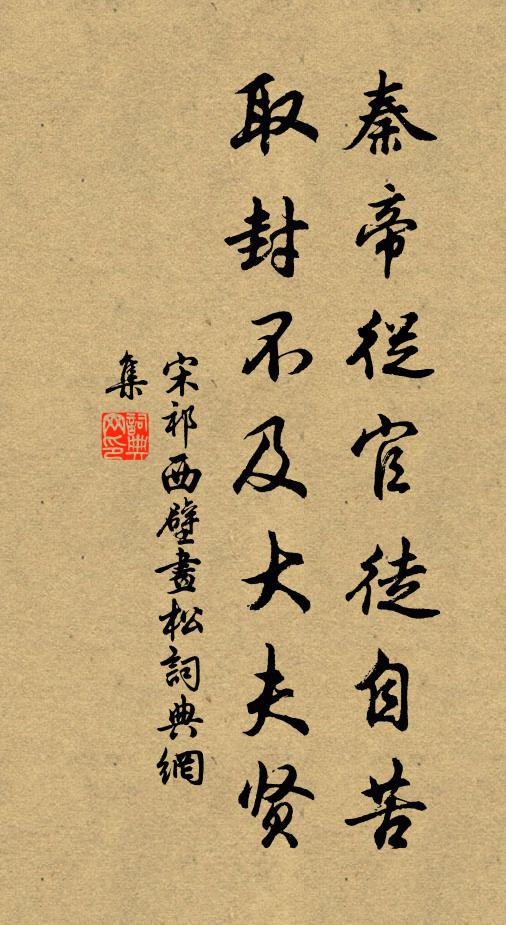 秦帝從官徒自苦
取封不及大夫贤
宋祁西壁畫松詞典網
集
詞典网印